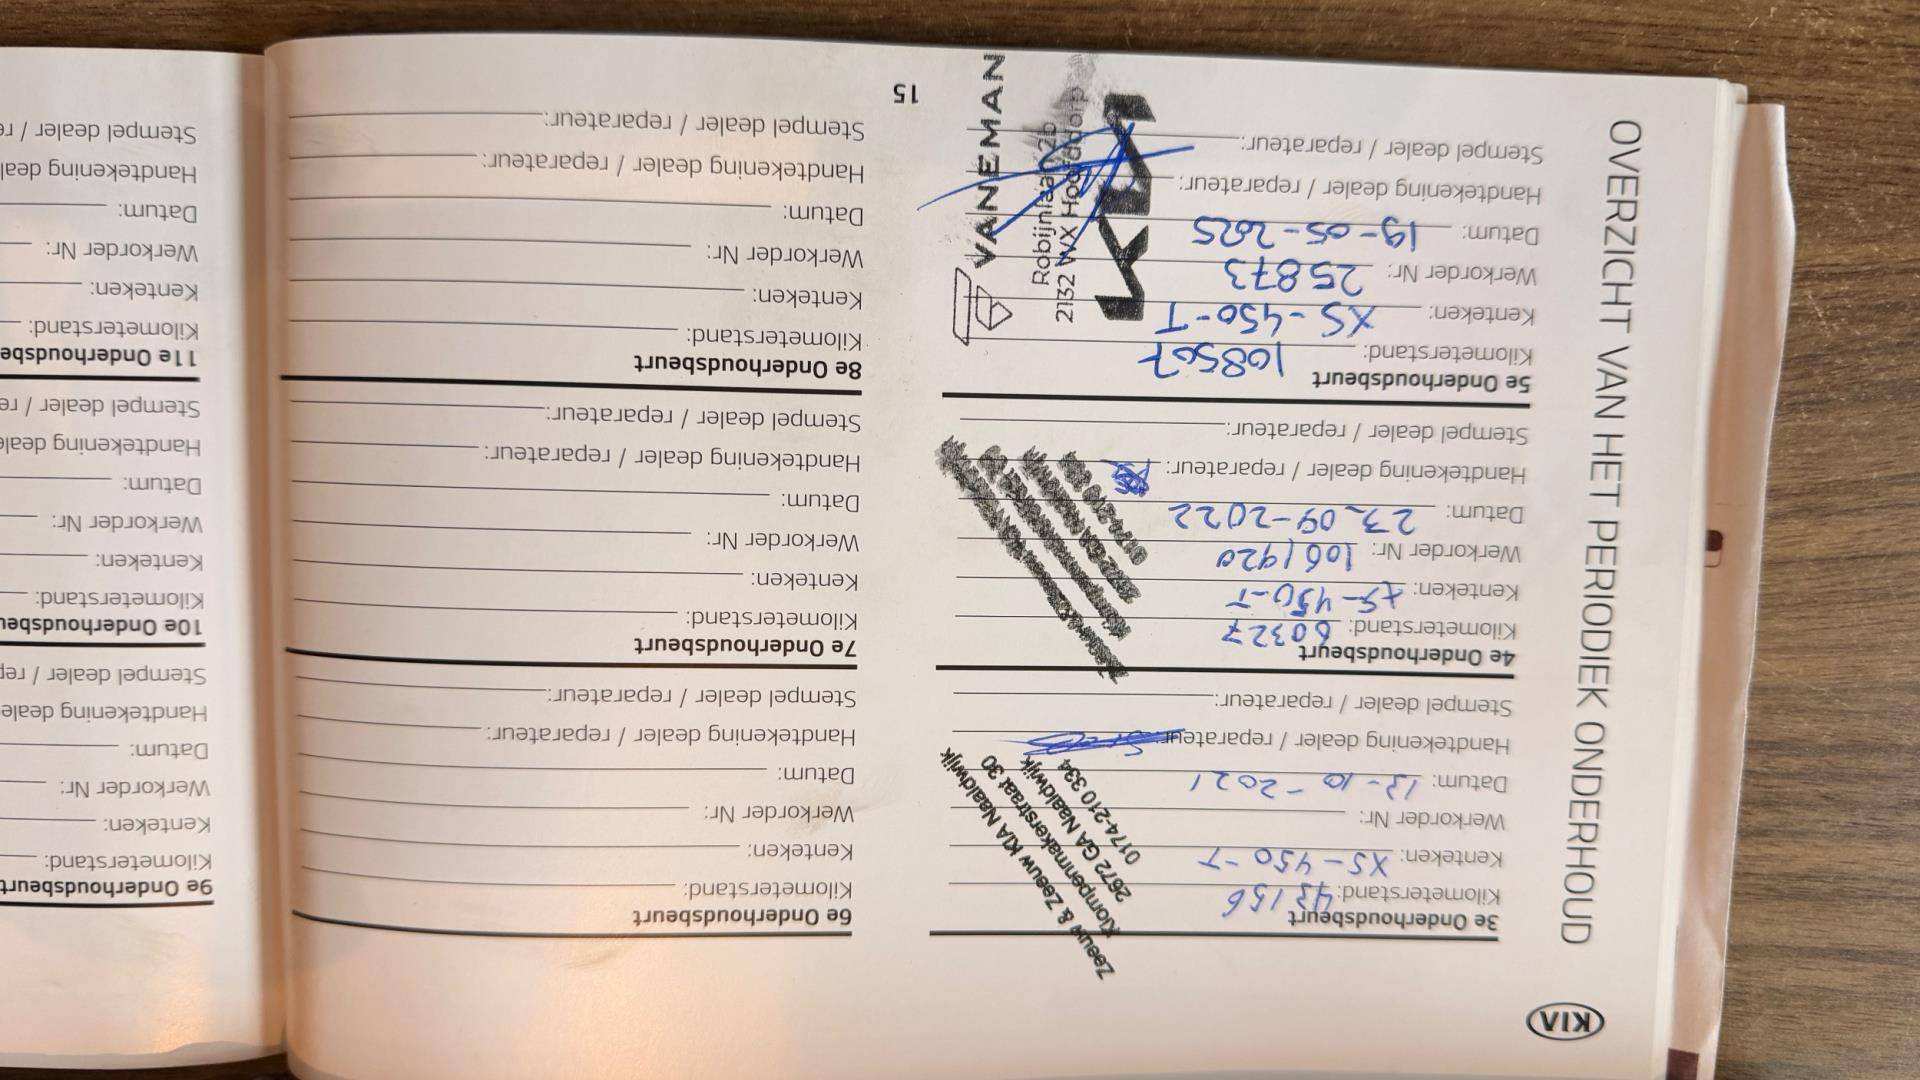 KIA
OVERZICHT VAN HET PERIODIEK ONDERHOUD
3e Onderhoudsbeurt
Kilometerstand: 43156
Kenteken: XS-450-T
Werkorder Nr:
Datum: 13-10-2021
Handtekening dealer / reparateur:
Stempel dealer / reparateur:
Zeeuw & Zeeuw KIA Naaldwijk
Klompenmakerstraat 30
2672 GA Naaldwijk
0174-210 334
4e Onderhoudsbeurt
Kilometerstand: 60327
Kenteken: XS-450-T
Werkorder Nr: 1061920
Datum: 23-09-2022
Handtekening dealer / reparateur:
Stempel dealer / reparateur:
5e Onderhoudsbeurt
Kilometerstand: 108507
Kenteken: XS-450-T
Werkorder Nr: 25873
Datum: 19-05-2025
Handtekening dealer / reparateur:
Stempel dealer / reparateur:
VANEMAN
Robijnlaan 2b
2132 WX Hoofddorp
KIA
6e Onderhoudsbeurt
Kilometerstand:
Kenteken:
Werkorder Nr:
Datum:
Handtekening dealer / reparateur:
Stempel dealer / reparateur:
7e Onderhoudsbeurt
Kilometerstand:
Kenteken:
Werkorder Nr:
Datum:
Handtekening dealer / reparateur:
Stempel dealer / reparateur:
8e Onderhoudsbeurt
Kilometerstand:
Kenteken:
Werkorder Nr:
Datum:
Handtekening dealer / reparateur:
Stempel dealer / reparateur:
15
9e Onderhoudsbeurt
Kilometerstand:
Kenteken:
Werkorder Nr:
Datum:
Handtekening deale
Stempel dealer / rep
10e Onderhoudsbeu
Kilometerstand:
Kenteken:
Werkorder Nr:
Datum:
Handtekening deale
Stempel dealer / re
11e Onderhoudsbe
Kilometerstand:
Kenteken:
Werkorder Nr:
Datum:
Handtekening deal
Stempel dealer / re